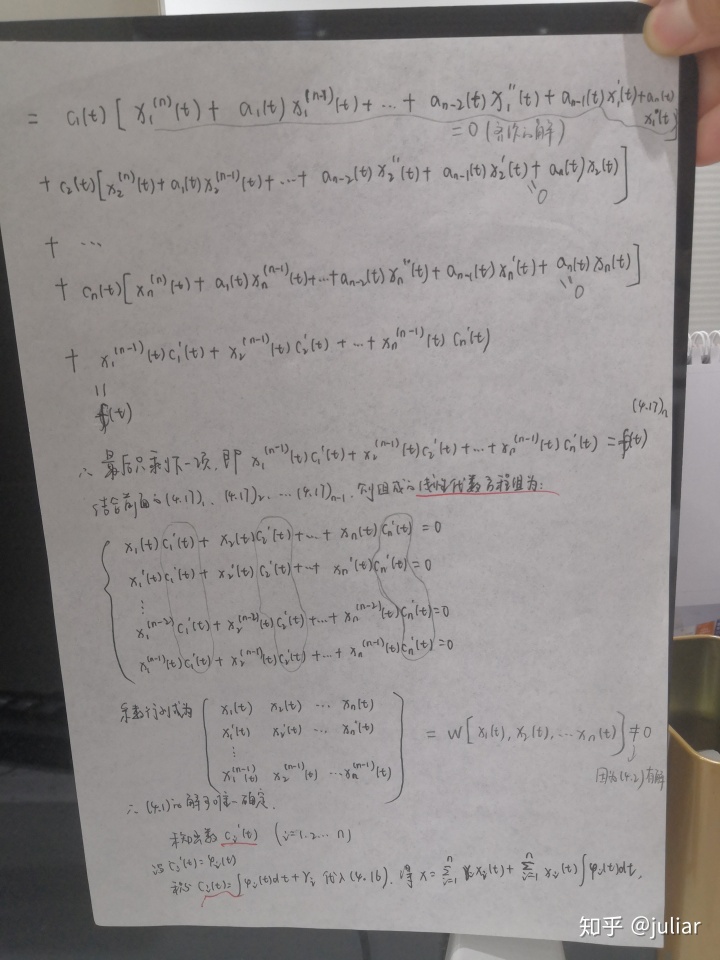 = c₁(t) [ x₁⁽ⁿ⁾(t) + a₁(t) x₁⁽ⁿ⁻¹⁾(t) + ... + aₙ₋₂(t) x₁''(t) + aₙ₋₁(t) x₁'(t) + aₙ(t)
x₁(t) ]
= 0 (齐次的解)
+ c₂(t) [ x₂⁽ⁿ⁾(t) + a₁(t) x₂⁽ⁿ⁻¹⁾(t) + ... + aₙ₋₂(t) x₂''(t) + aₙ₋₁(t) x₂'(t) + aₙ(t) x₂(t) ]
= 0
+ ...
+ cₙ(t) [ xₙ⁽ⁿ⁾(t) + a₁(t) xₙ⁽ⁿ⁻¹⁾(t) + ... + aₙ₋₂(t) xₙ''(t) + aₙ₋₁(t) xₙ'(t) + aₙ(t) xₙ(t) ]
= 0
+ x₁⁽ⁿ⁻¹⁾(t) c₁'(t) + x₂⁽ⁿ⁻¹⁾(t) c₂'(t) + ... + xₙ⁽ⁿ⁻¹⁾(t) cₙ'(t)
=
f(t)
(4.17)ₙ
∴ 最后只剩下一项, 即 x₁⁽ⁿ⁻¹⁾(t) c₁'(t) + x₂⁽ⁿ⁻¹⁾(t) c₂'(t) + ... + xₙ⁽ⁿ⁻¹⁾(t) cₙ'(t) = f(t)
结合前面的 (4.17)₁、(4.17)₂、...(4.17)ₙ₋₁, 则组成的线性代数方程组为:
x₁(t) c₁'(t) + x₂(t) c₂'(t) + ... + xₙ(t) cₙ'(t) = 0
x₁'(t) c₁'(t) + x₂'(t) c₂'(t) + ... + xₙ'(t) cₙ'(t) = 0
⋮
x₁⁽ⁿ⁻²⁾ c₁'(t) + x₂⁽ⁿ⁻²⁾(t) c₂'(t) + ... + xₙ⁽ⁿ⁻²⁾(t) cₙ'(t) = 0
x₁⁽ⁿ⁻¹⁾(t) c₁'(t) + x₂⁽ⁿ⁻¹⁾(t) c₂'(t) + ... + xₙ⁽ⁿ⁻¹⁾(t) cₙ'(t) = 0
系数行列式为 x₁(t) x₂(t) ... xₙ(t)
x₁'(t) x₂'(t) ... xₙ'(t)
⋮
x₁⁽ⁿ⁻¹⁾(t) x₂⁽ⁿ⁻¹⁾(t) ... xₙ⁽ⁿ⁻¹⁾(t)
= W [ x₁(t), x₂(t), ... xₙ(t) ] ≠ 0
因为(4.2)有解
∴ (4.1)的解可唯一确定.
cᵢ'(t) (i=1.2... n)
设 cᵢ'(t) = φᵢ(t)
cᵢ(t) = ∫φᵢ(t)dt + γᵢ 代入(4.16), 得 x = Σⁿᵢ₌₁ γᵢxᵢ(t) + Σⁿᵢ₌₁ xᵢ(t) ∫φᵢ(t)dt,
知乎 @juliar